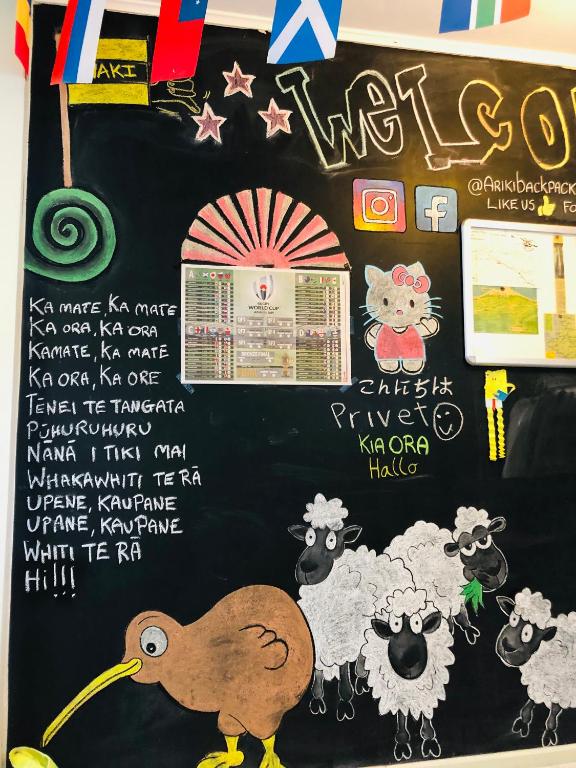 AKI
WELCO
@ARIKIBACKPACK
LIKE US
FO
RUGBY
WORLD CUP
BRONZE FINAL
KA MATE, KA MATE
KA ORA, KA ORA
KAMATE, KA MATE
KA ORA, KA ORE
TĒNEI TE TANGATA
PŪHURUHURU
NĀNĀ I TIKI MAI
WHAKAWHITI TE RĀ
UPENE, KAUPANE
UPANE, KAUPANE
WHITI TE RĀ
Hi!!!
こんにちは
Privet
KIA ORA
Hallo